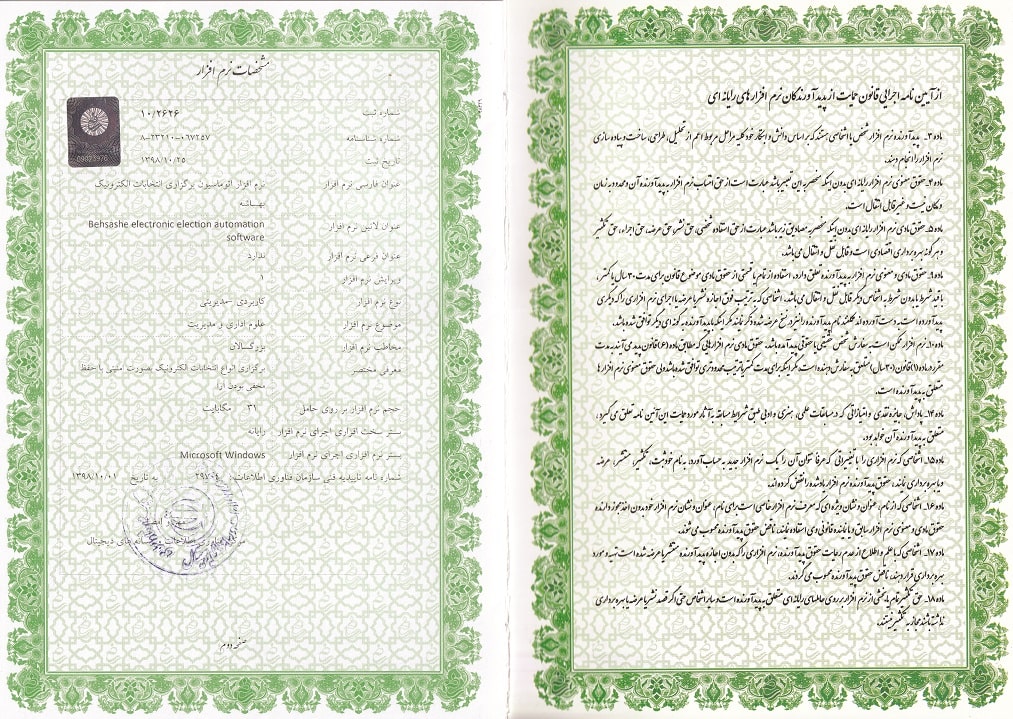 مشخصات نرم افزار
شماره ثبت ۱۰/۲۶۲۶
شماره شناسنامه ۸-۲۳۲۱۰-۰۶۷۲۵۷
تاریخ ثبت ۱۳۹۸/۱۰/۲۵
09023976
عنوان فارسی نرم افزار نرم افزار اتوماسیون برگزاری انتخابات الکترونیک
بهساشه
عنوان لاتین نرم افزار Behsashe electronic election automation
software
عنوان فرعی نرم افزار ندارد
ویرایش نرم افزار ۱
نوع نرم افزار کاربردی -مدیریتی
موضوع نرم افزار علوم اداری و مدیریت
مخاطب نرم افزار بزرگسالان
معرفی مختصر برگزاری انواع انتخابات الکترونیک بصورت امنیتی با حفظ
مخفی بودن آرا
حجم نرم افزار بر روی حامل ۳۱ مگابایت
بستر سخت افزاری اجرای نرم افزار رایانه
بستر نرم افزاری اجرای نرم افزار Microsoft Windows
شماره نامه تاییدیه فنی سازمان فناوری اطلاعات: به تاریخ ۱۳۹۸/۱۰/۰۱
اطلاعات رسانه های دیجیتال
صفحه دوم
از آیین نامه اجرائی قانون حمایت از پدیدآورندگان نرم افزارهای رایانه ای
ماده ۳- پدیدآورنده نرم افزار شخص یا اشخاصی هستند که بر اساس دانش و ابتکار خود کلیه مراحل مربوط اعم از تحلیل، طراحی، ساخت و پیاده سازی
نرم افزار را انجام دهند.
ماده ۴- حقوق معنوی نرم افزار رایانه ای بدون اینکه منحصر به این تعبیر باشد عبارت است از حق انتساب نرم افزار به پدیدآورنده آن و محدود به زمان
و مکان نیست و غیر قابل انتقال است.
ماده ۵- حقوق مادی نرم افزار رایانه ای بدون اینکه منحصر به مصادیق زیر باشد عبارت است از حق استفاده شخصی، حق نشر، حق عرضه، حق اجراء، حق تکثیر
و هرگونه بهره برداری اقتصادی است و قابل نقل و انتقال می باشد.
ماده ۹- حقوق مادی و معنوی نرم افزار به پدیدآورنده تعلق دارد، استفاده از تمام یا قسمتی از حقوق مادی موضوع قانون برای مدت ۳۰ سال یا کمتر،
با قید شرط یا بدون شرط به اشخاص دیگر قابل نقل و انتقال می باشد. اشخاصی که به ترتیب فوق اجازه نشر یا عرضه یا اجرای نرم افزاری را که دیگری
پدیدآورده است به دست آورده اند مکلفند نام پدیدآورنده را نیز در نسخ عرضه شده ذکر نمایند مگر اینکه با پدیدآورنده به گونه ای دیگر توافق شده باشد.
ماده ۱۰- نرم افزار ممکن است به سفارش شخص حقیقی یا حقوقی پدید آمده باشد. حقوق مادی نرم افزارهایی که مطابق ماده (۶) قانون پدید می آیند به مدت
مقرر در ماده (۱) قانون (۳۰ سال) متعلق به سفارش دهنده است، مگر اینکه برای مدت کمتر یا ترتیب محدودتری توافق شده باشد ولی حقوق معنوی نرم افزارها
متعلق به پدیدآورنده است.
ماده ۱۴- پاداش، جایزه نقدی و امتیازاتی که در مسابقات علمی، هنری و ادبی طبق شرایط مسابقه به آثار مورد حمایت این آیین نامه تعلق می گیرد،
متعلق به پدیدآورنده آن خواهد بود.
ماده ۱۵- اشخاصی که نرم افزاری را با تغییراتی که عرفا نتوان آن را یک نرم افزار جدید به حساب آورد، به نام خود ثبت، تکثیر، منتشر، عرضه
و یا بهره برداری نمایند، حقوق پدیدآورنده نرم افزار یادشده را نقض کرده اند.
ماده ۱۶- اشخاصی که از نام، عنوان و نشان ویژه ای که معرف نرم افزار خاصی است برای نام، عنوان و نشان نرم افزار خود بدون اخذ مجوز دارنده
حقوق مادی و معنوی نرم افزار سابق و یا نماینده قانونی وی استفاده نمایند، ناقض حقوق پدیدآورنده محسوب می شوند.
ماده ۱۷- اشخاصی که با علم و اطلاع از عدم رعایت حقوق پدیدآورنده، نرم افزاری را که بدون اجازه پدیدآورنده منتشر یا عرضه شده است تهیه و مورد
بهره برداری قرار دهند، ناقض حقوق پدیدآورنده محسوب می گردند.
ماده ۱۸- حق تکثیر تمام یا بخشی از نرم افزار بر روی حاملهای رایانه ای متعلق به پدیدآورنده است و سایر اشخاص حتی اگر قصد نشر یا عرضه یا بهره برداری
نداشته باشند مجاز به تکثیر نیستند.